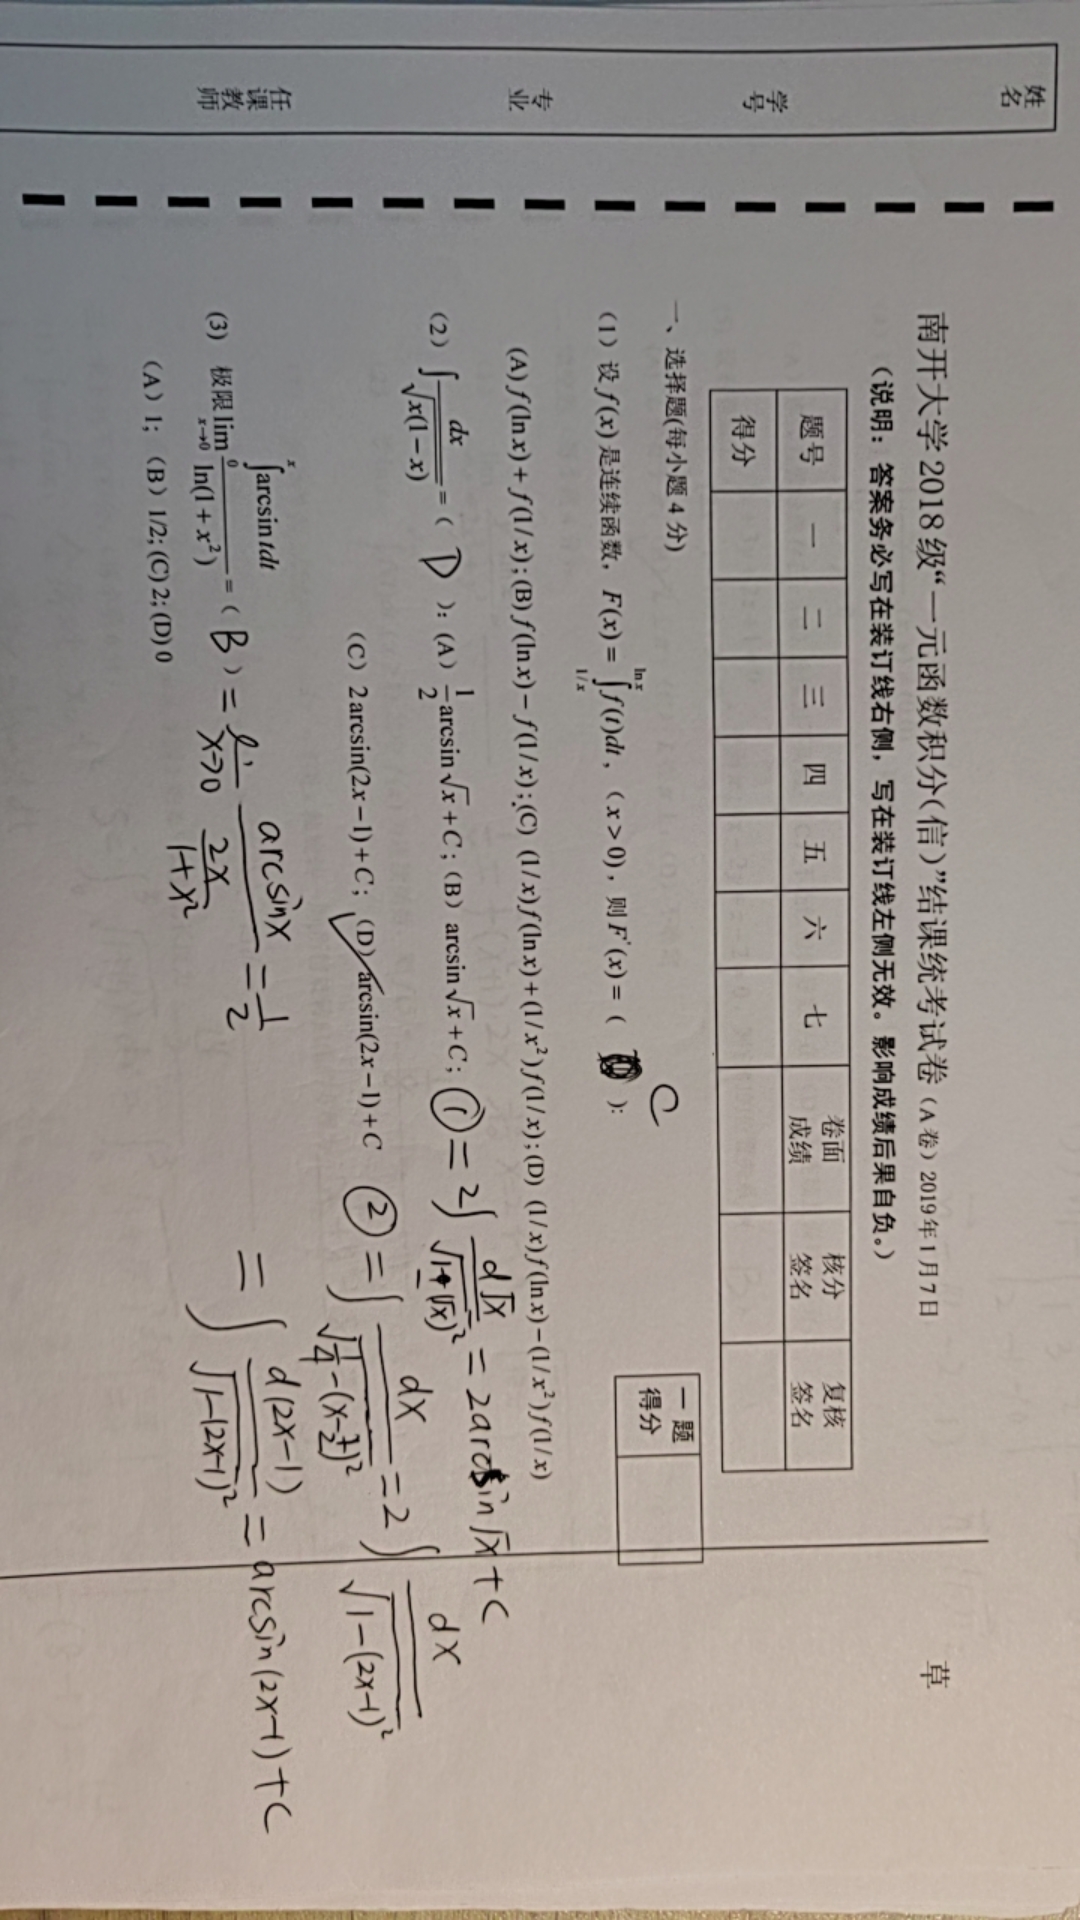 姓名
学号
专业
任课教师
南开大学 2018 级“一元函数积分(信)”结课统考试卷（A 卷）2019 年 1 月 7 日
草
（说明：答案务必写在装订线右侧，写在装订线左侧无效。影响成绩后果自负。）
题号 一 二 三 四 五 六 七 卷面成绩 核分签名 复核签名
得分
一、选择题(每小题 4 分)
一题得分
（1）设 f(x) 是连续函数，F(x) = ∫_{1/x}^{ln x} f(t)dt，（x>0），则 F'(x) = （ C ）:
(A) f(ln x) + f(1/x); (B) f(ln x) − f(1/x); (C) (1/x)f(ln x) + (1/x²)f(1/x); (D) (1/x)f(ln x) − (1/x²)f(1/x)
（2）∫ dx/√(x(1−x)) = （ D ）: (A) 1/2 arcsin √x + C; (B) arcsin √x + C;
① = 2∫ d√x/√(1−(√x)²) = 2arcsin √x + C
(C) 2 arcsin(2x−1) + C; (D) arcsin(2x−1) + C
② = ∫ dx/√(1/4−(x−1/2)²) = 2∫ dx/√(1−(2x−1)²)
= ∫ d(2x−1)/√(1−(2x−1)²) = arcsin(2x−1) + C
（3）极限 lim_{x→0} ∫_0^x arcsin t dt / ln(1+x²) = （ B ） = lim_{x→0} arcsin x / (2x/(1+x²)) = 1/2
（A）1;（B）1/2; (C) 2; (D) 0